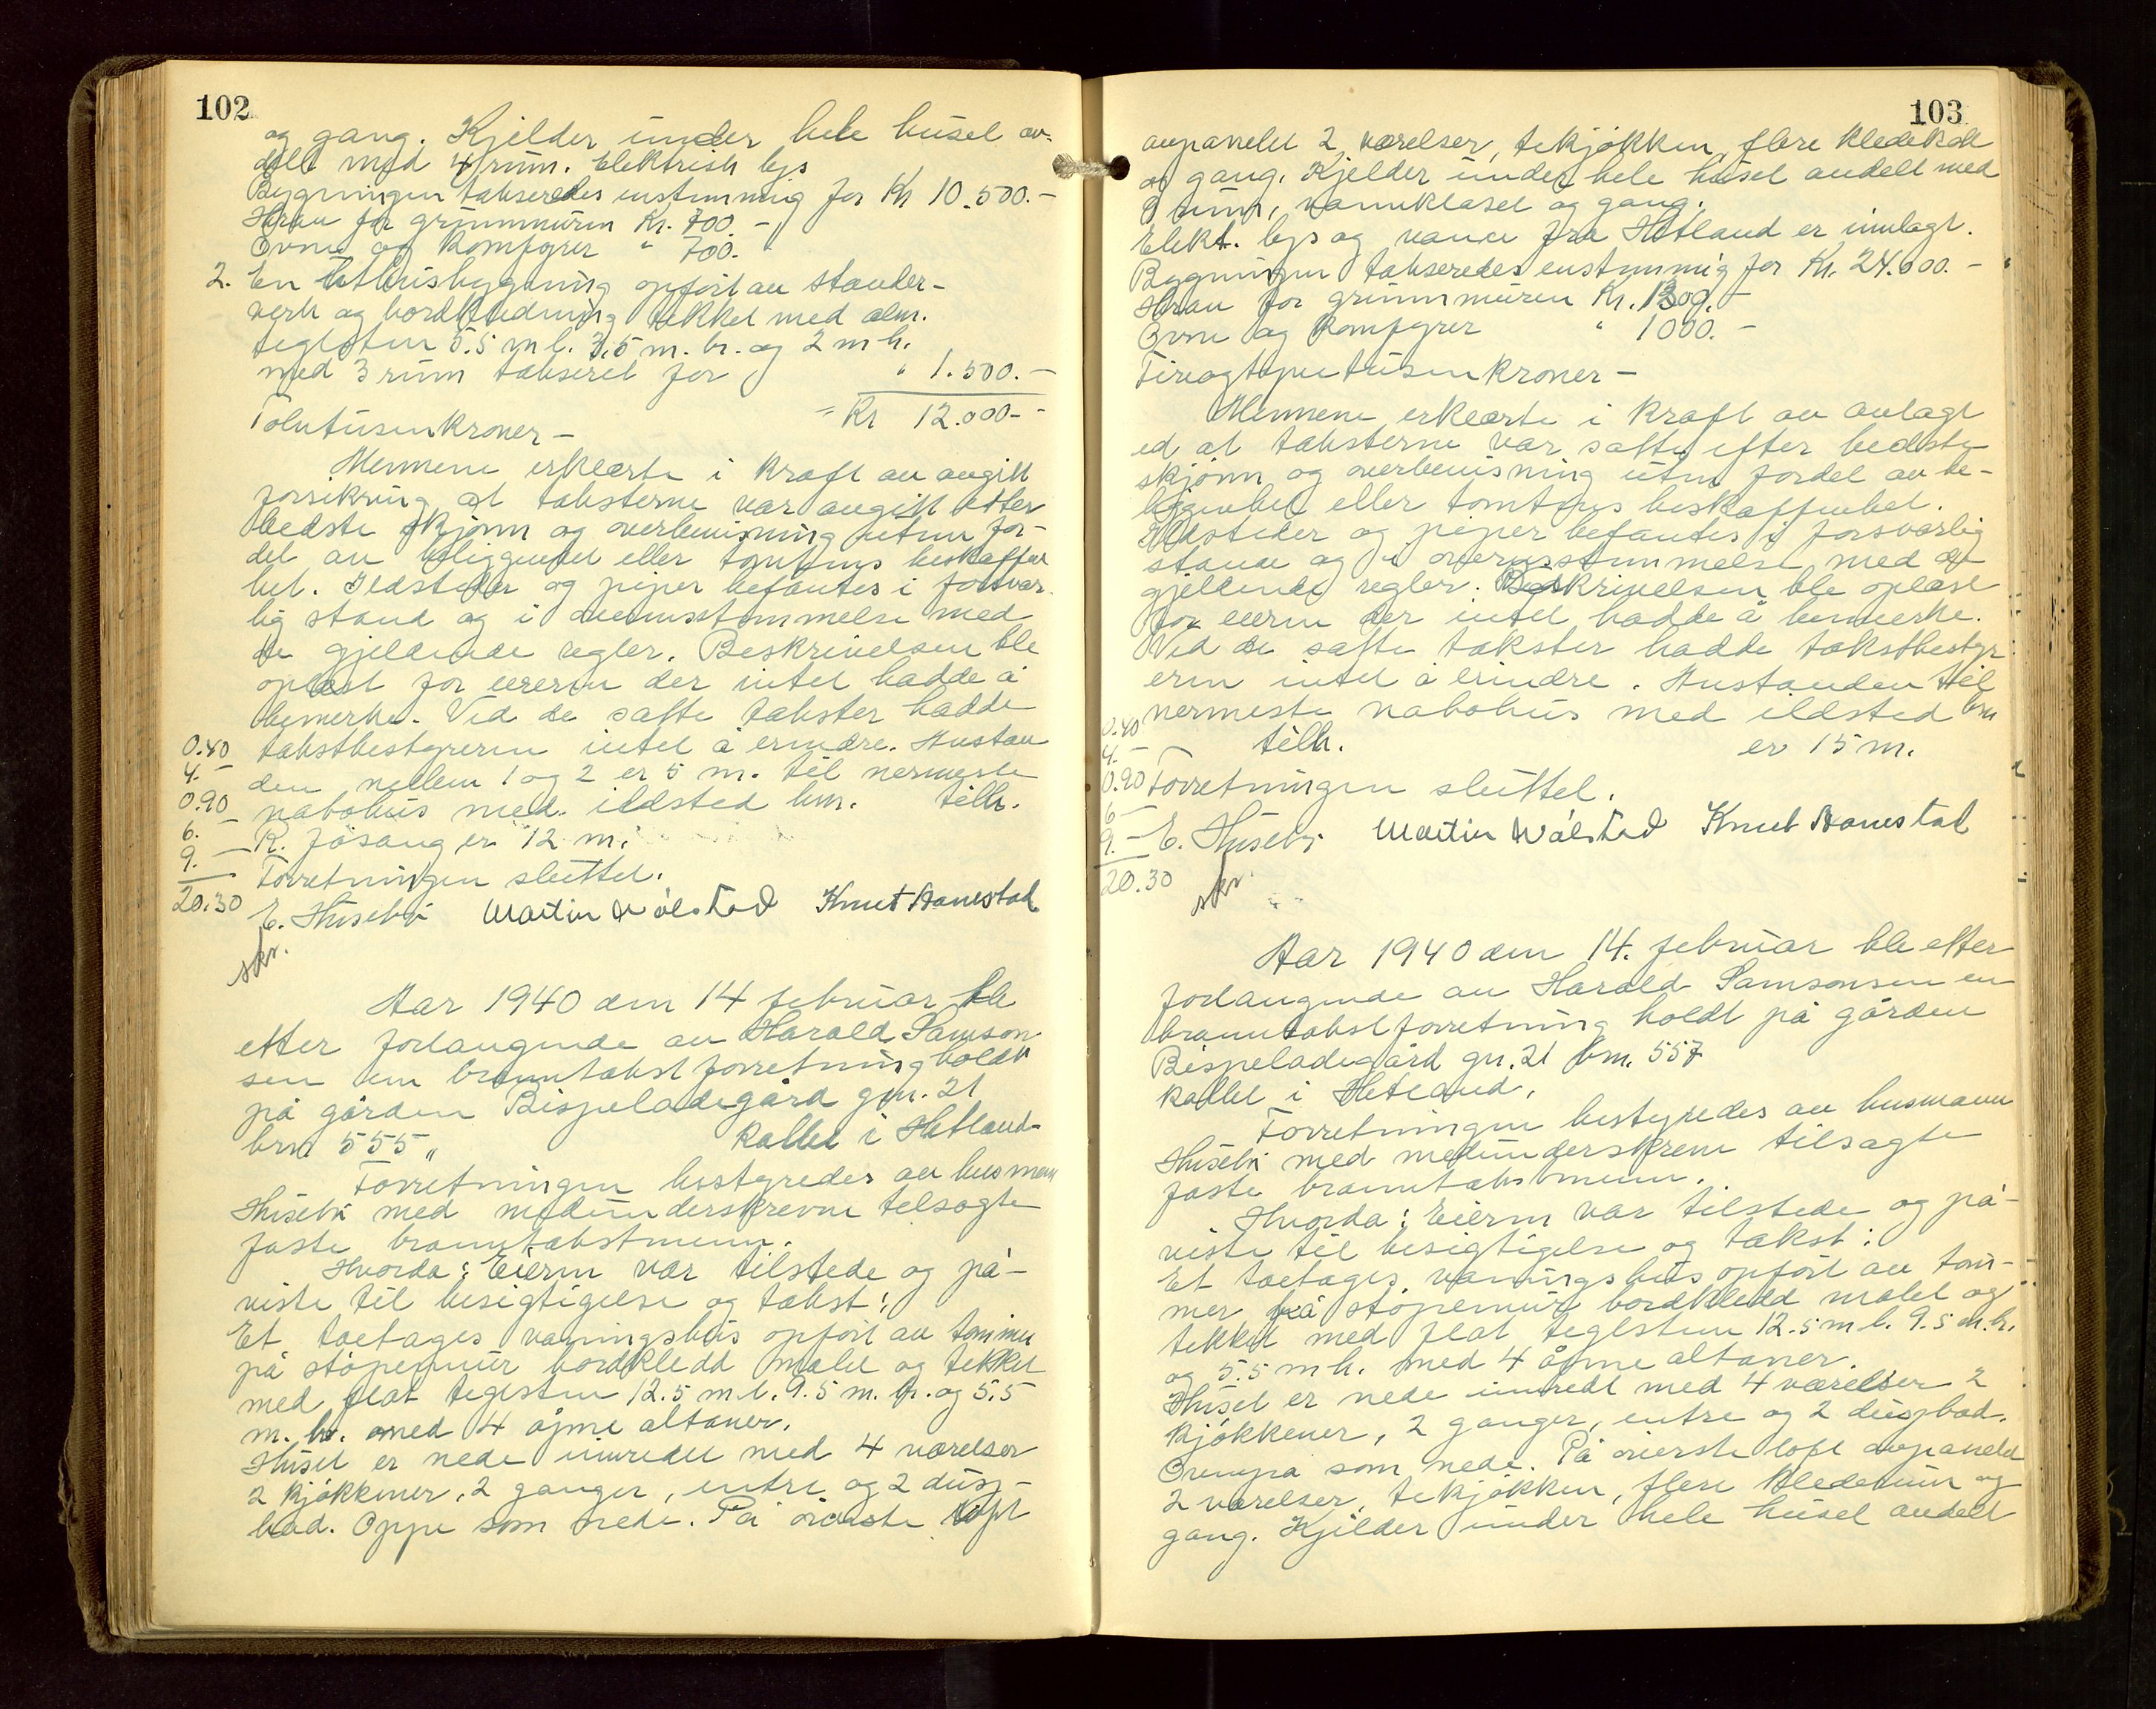 102
og gang. Kjelder under hele huset av-
delt med 4 rum. Elektrisk lys
Bygningen takseredes enstemmig for Kr 10.500.-
Herav for grunnmuren Kr. 700.-
Ovne og komfyrer " 700.-
2. En uthusbygning opført av stander-
verk og bordkledning tekket med alm.
teglsten 5.5 m l. 3,5 m. br. og 2 m h.
med 3 rum taksert for " 1.500.-
Tolvtusenkroner- = Kr 12.000.-
Mennene erklærte i kraft av avgitt
forsikring at taksterne var avgitt etter
bedste skjønn og overbevisning uten for-
del av beliggenhet eller tomtens beskaffen
het. Ildsteder og piper befantes i forsvar-
lig stand og i overensstemmelse med
de gjeldende regler. Beskrivelsen ble
oplæst for eieren der intet hadde å
bemerke. Ved de satte takster hadde
0.40 takstbestyreren intet å erindre. Avstan
4.- den mellem 1 og 2 er 5 m. til nermeste
0.90 nabohus med ildsted brn. tilh.
6.- R. Jøsang er 12 m.
9.- Forretningen sluttet.
20.30 E. Husebø Martin Wølstad Knut Haavestad
skr.
Aar 1940 den 14 februar ble
etter forlangende av Harald Samson
sen en branntakstforretning holdt
på gården Bispeladegård gnr. 21
brn. 555 " kallet i Hetland-
Forretningen bestyredes av husmann
Husebø med medunderskrevne tilsagte
faste branntakstmenn.
Hvorda: Eieren var tilstede og på-
viste til besigtigelse og takst:
Et toetages vaningshus opført av tømmer
på støpemur bordkledd malet og tekket
med flat teglsten 12.5 m l. 9.5 m. br. og 5.5
m. h. med 4 åpne altaner.
Huset er nede innredet med 4 værelser
2 kjøkkener, 2 ganger, entre og 2 dusj-
bad. Oppe som nede. På øverste loft
103
avpanelet 2 værelser, tekjøkken, flere kledekott
og gang. Kjelder under hele huset avdelt med
8 rum, vannklaset og gang.
Elekt. lys og vann fra Hetland er innlagt.
Bygningen takseredes enstemmig for Kr. 24.000.-
Herav for grunnmuren Kr. 1300.-
Ovne og komfyrer " 1000.-
Fireogtyvetusenkroner-
Mennene erklærte i kraft av avlagt
ed at taksterne var satte efter bedste
skjønn og overbevisning uten fordel av be-
liggenhet eller tomtens beskaffenhet.
Ildsteder og piper befantes i forsvarlig
stand og i overensstemmelse med de
gjeldende regler. Beskrivelsen ble oplæst
for eieren der intet hadde å bemerke.
Ved de satte takster hadde takstbestyr-
eren intet å erindre. Avstanden til
0.40 nermeste nabohus med ildsted brn
4.- tilh. er 15 m.
0.90 Forretningen sluttet.
6-
9.- E. Husebø Martin Wølstad Knut Haavestad
20.30
skr.
Aar 1940 den 14. februar ble etter
forlangende av Harald Samsonsen en
branntakstforretning holdt på gården
Bispeladegård gn. 21 brn. 557
kallet i Hetland.
Forretningen bestyredes av husmann
Husebø med medunderskrevne tilsagte
faste branntakstmenn.
Hvorda: Eieren var tilstede og på-
viste til besigtigelse og takst:
Et toetages vaningshus opført av tøm-
mer på støpemur bordkledd malet og
tekket med flat teglsten 12.5 m l. 9.5 m. br.
og 5.5 m h. med 4 åpne altaner.
Huset er nede innredt med 4 værelser 2
kjøkkener, 2 ganger, entre og 2 dusjbad.
Ovenpå som nede. På øverste loft avpanelet
2 værelser, tekjøkken, flere klederum og
gang. Kjelder under hele huset avdelt